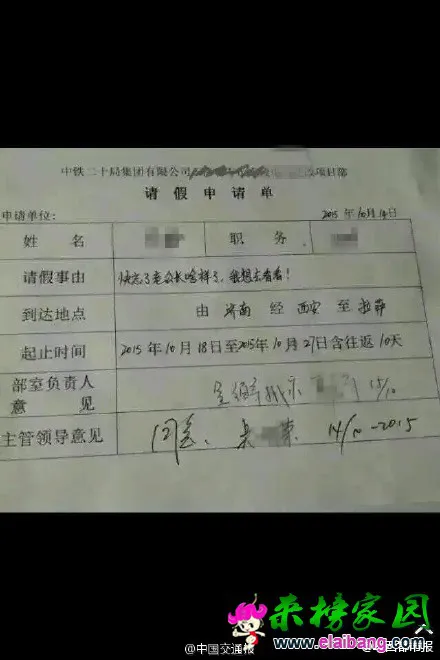 中铁二十局集团有限公司 项目部
请假申请单
申请单位: 2015年10月14日
姓名 职务
请假事由 快忘了老公长啥样了,我想去看看!
到达地点 由 济南 经 西安 至 拉萨
起止时间 2015年10月18日至2015年10月27日含往返10天
部室负责人意见 15/10
主管领导意见 同意、 14/10-2015
@中国交通报
来榜家园
www.elaibang.com